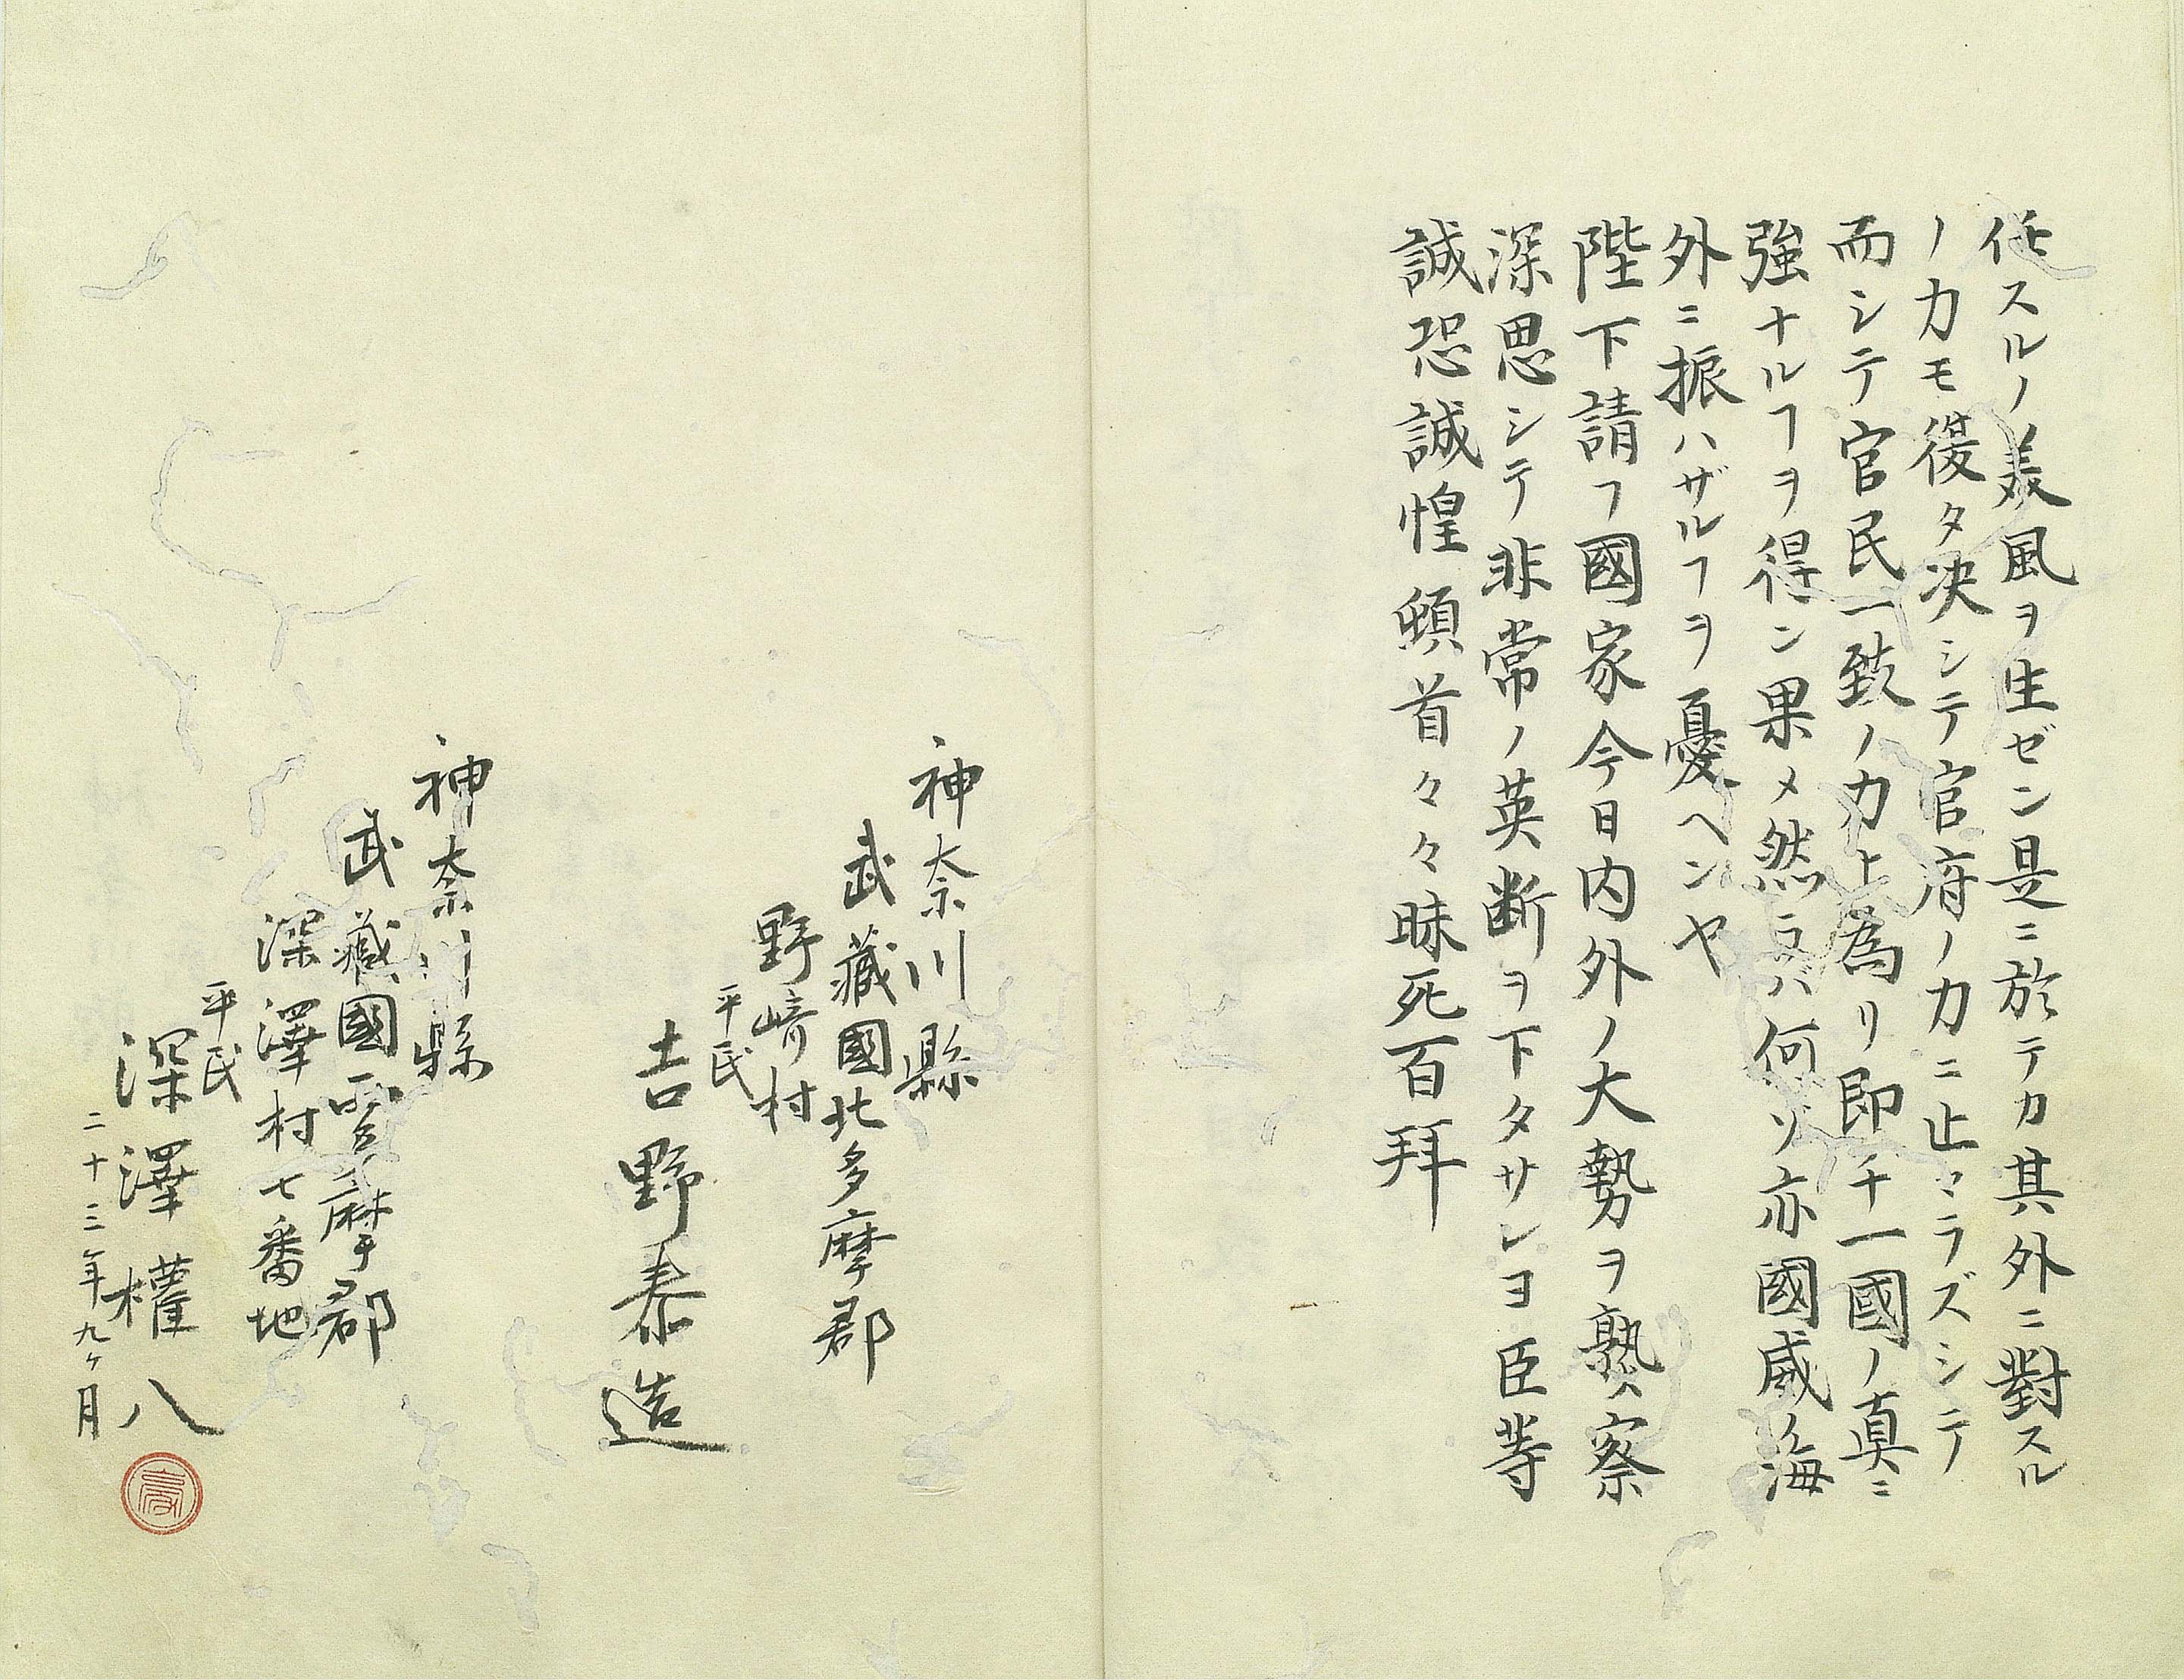 任スルノ美風ヲ生ゼン是ニ於テカ其外ニ對スル
ノ力モ復タ决シテ官府ノ力ニ止マラズシテ
而シテ官民一致ノ力ト為リ即チ一國ノ真ニ
強ナルヿヲ得ン果メ然ラバ何ゾ亦國威ノ海
外ニ振ハザルヿヲ憂ヘンヤ
陛下請フ國家今日内外ノ大勢ヲ熟察
深思シテ非常ノ英断ヲ下タサレヨ臣等
誠恐誠惶頓首々々昧死百拜
神奈川縣
武藏國北多摩郡
野﨑村
平民
吉野泰造
神奈川縣
武藏國西多摩郡
深澤村七番地
平民
深澤權八
二十三年九ヶ月